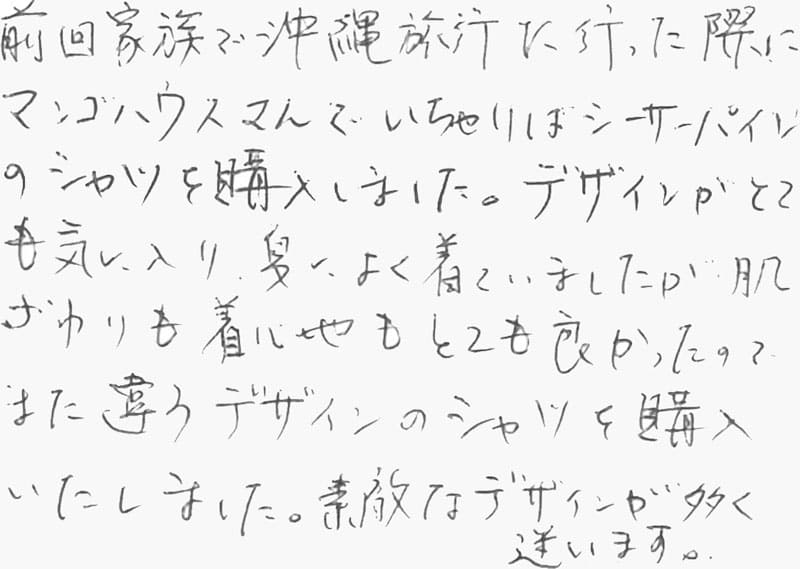 前回家族で沖縄旅行に行った際に
マンゴハウスさんでいちゃりばシーサーパイン
のシャツを購入しました。デザインがとて
も気に入り、夏によく着ていましたが肌
ざわりも着心地もとても良かったので
また違うデザインのシャツを購入
いたしました。素敵なデザインが多く
迷います。